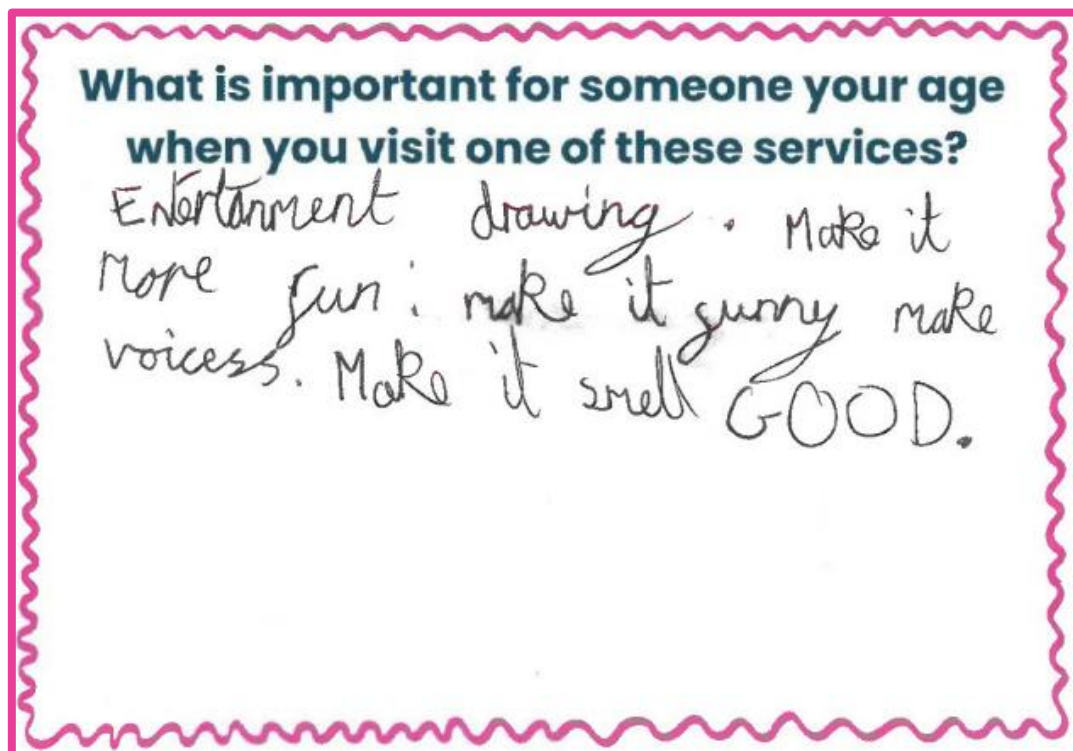 What is important for someone your age
when you visit one of these services?
Entertanment drawing. Make it
more fun: make it gunny make
voicess. Make it smell GOOD.